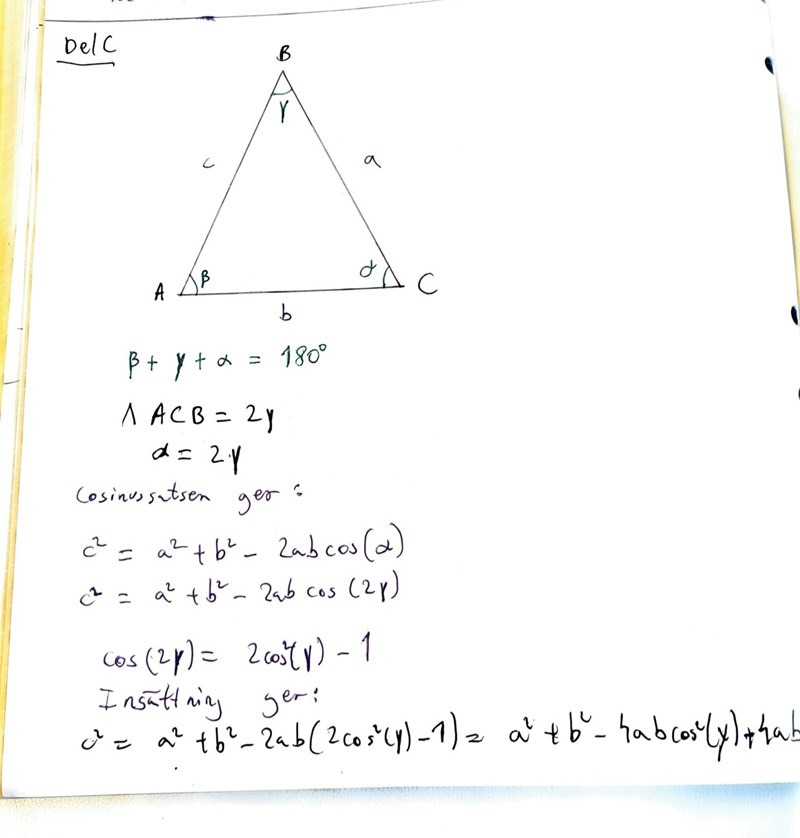 Del C
B
γ
c
a
A
β
α
C
b
β + γ + α = 180°
∧ ACB = 2γ
α = 2γ
Cosinussatsen ger:
c² = a² + b² - 2ab cos(α)
c² = a² + b² - 2ab cos (2γ)
cos (2γ) = 2cos²(γ) - 1
Insättning ger:
c² = a² + b² - 2ab(2cos²(γ) - 1) = a² + b² - 4abcos²(γ) + 4ab